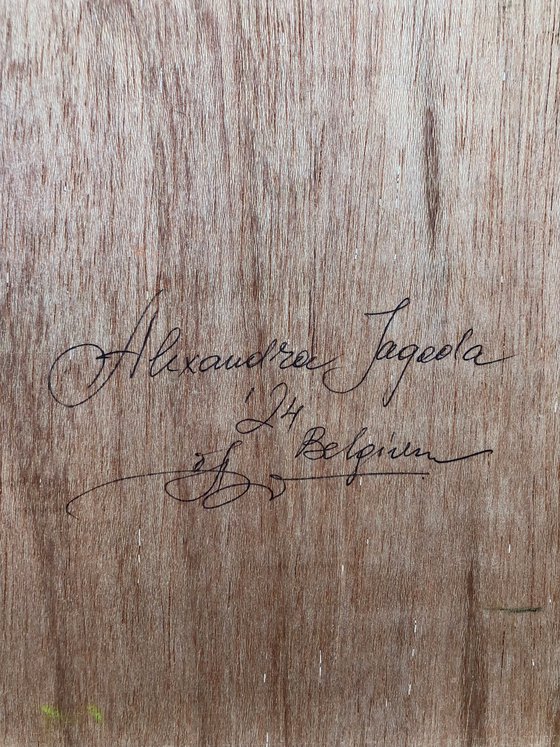 Alexandra Jagoda
'24
Belgium